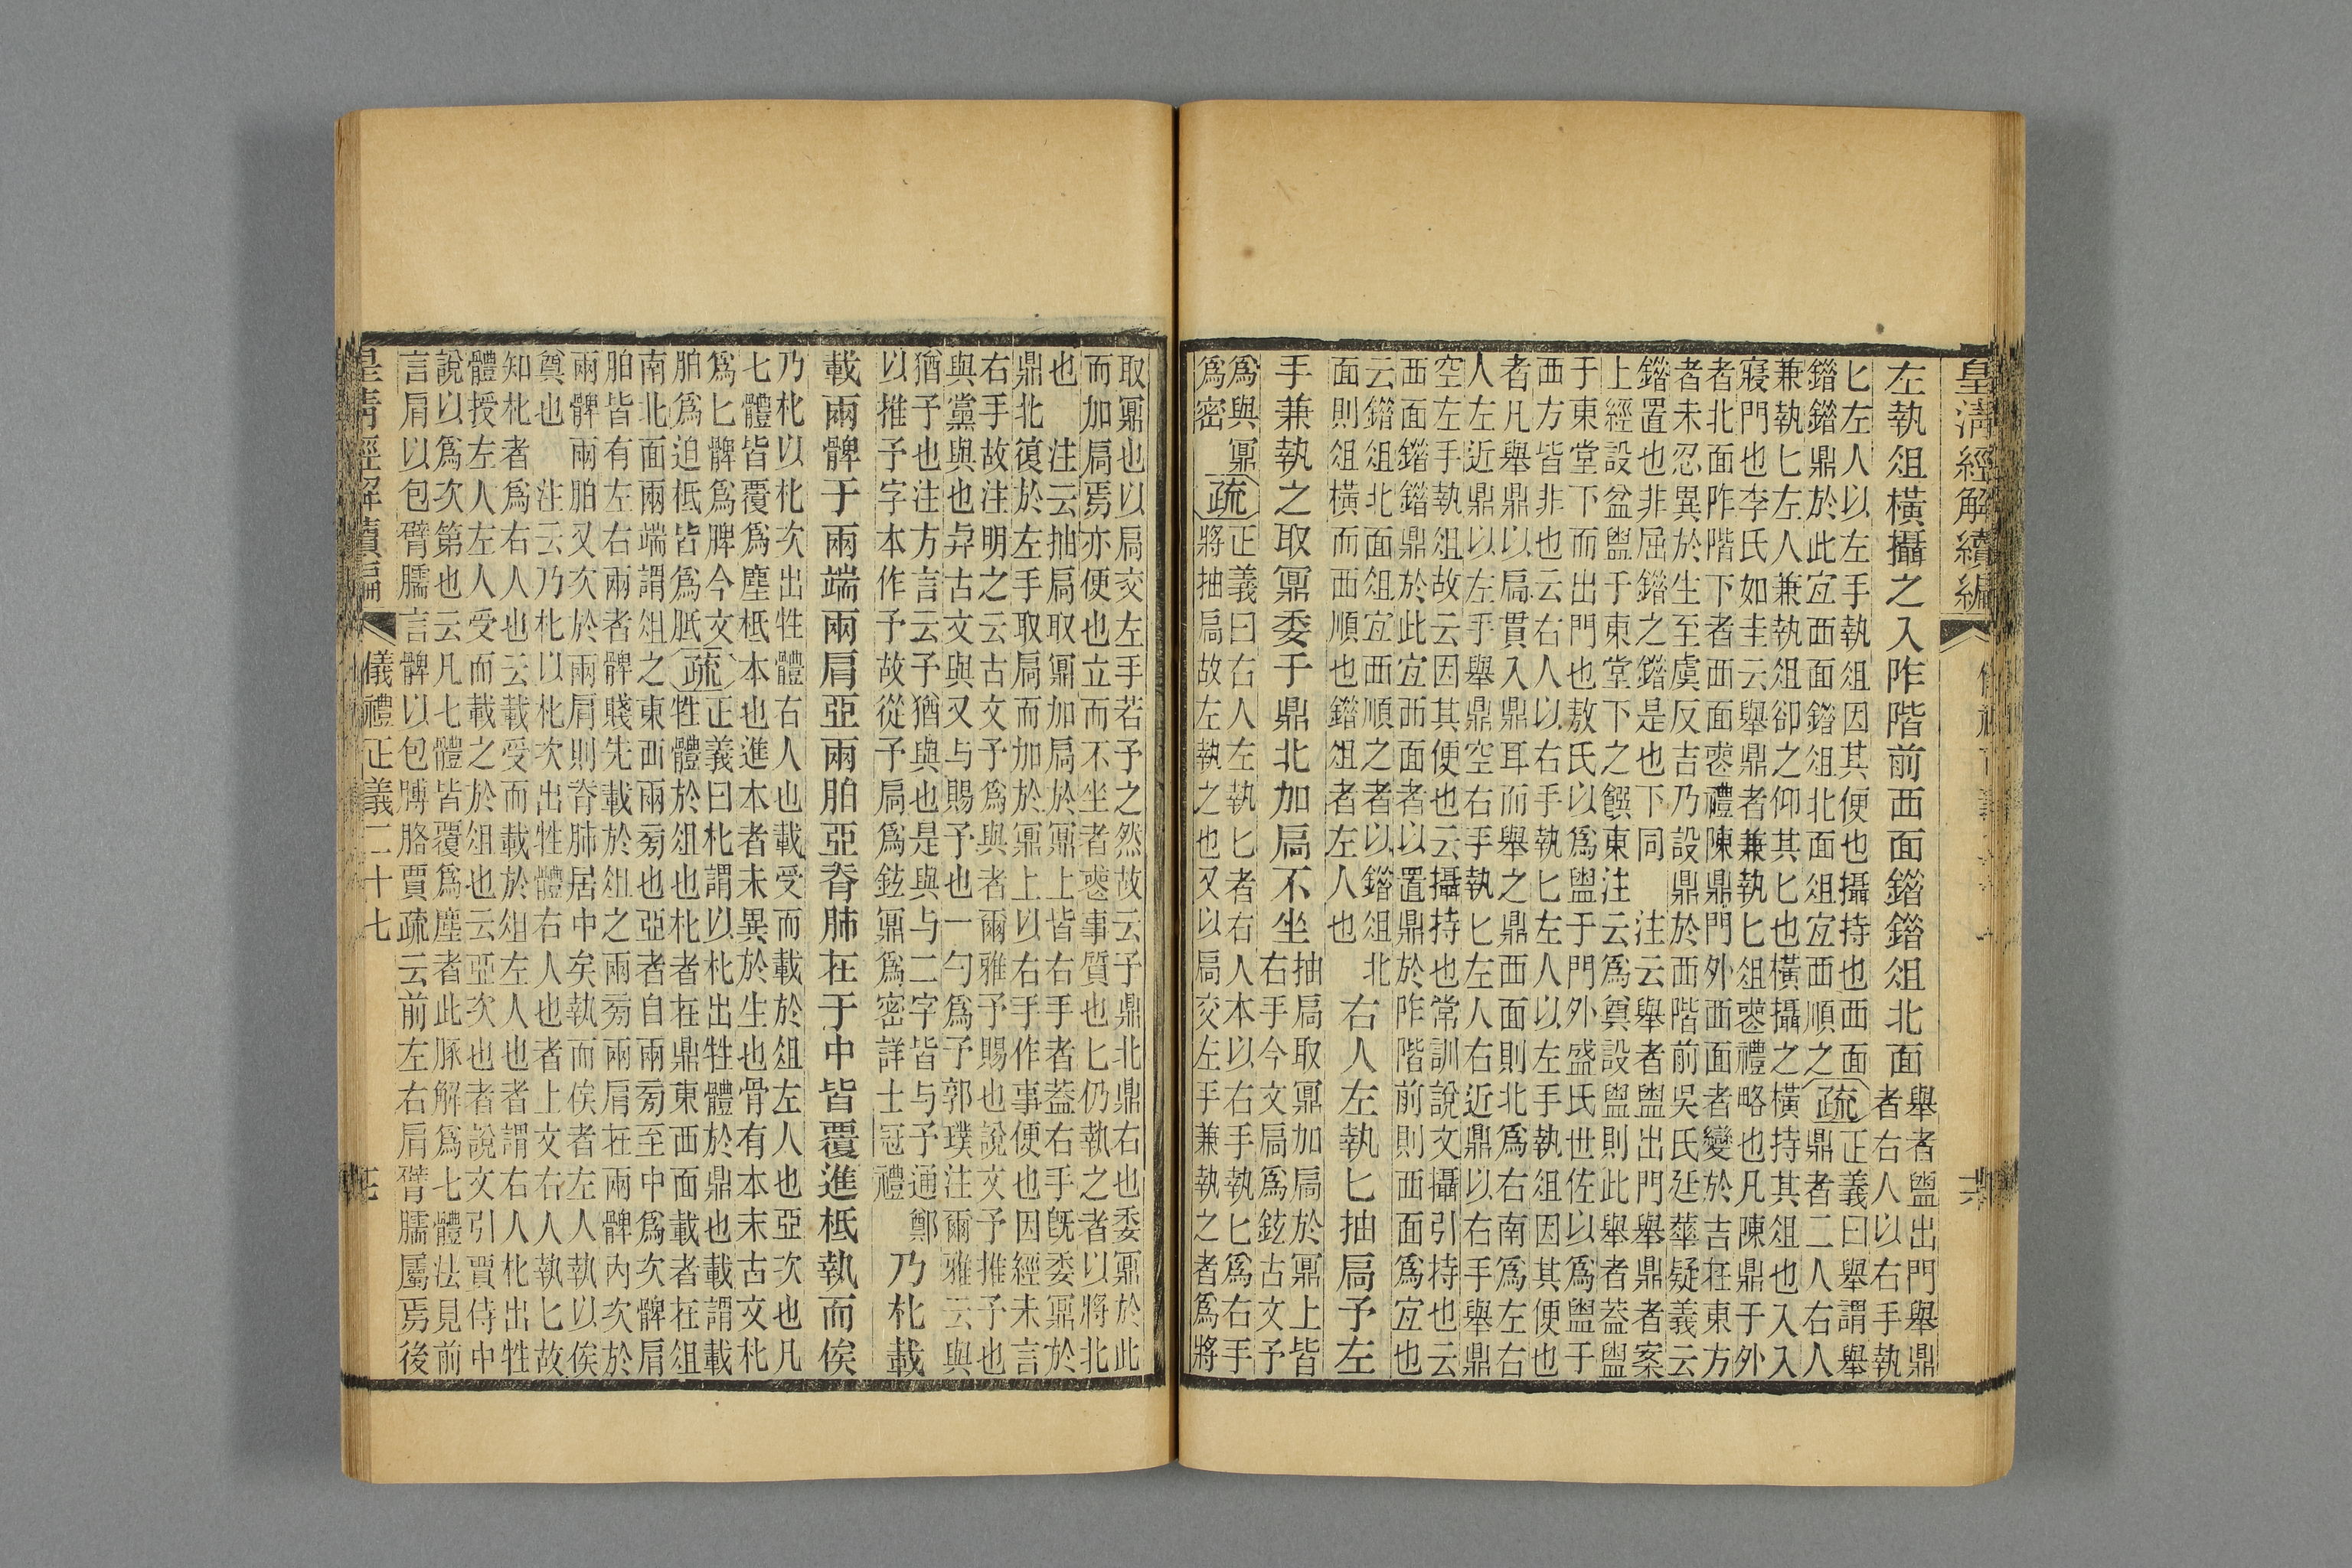 皇清經解續編
左執俎橫攝之入阼階前西面錯錯俎北面
舉者盥出門舉鼎
者右人以右手執
匕左人以左手執俎因其便也攝持也西面
錯錯鼎於此宜西面錯俎北面俎宜西順之
疏
正義曰舉謂舉
鼎者二人右人
兼執匕左人兼執俎卻之仰其匕也橫攝之橫持其俎也入入
寢門也李氏如圭云舉鼎者兼執匕俎喪禮略也凡陳鼎于外
者北面阼階下者西面喪禮陳鼎門外西面者變於吉在東方
者未忍異於生至虞反吉乃設鼎於西階前吳氏廷華疑義云
錯置也非屈錯之錯是也下同　注云舉者盥出門舉鼎者案
上經設盆盥于東堂下之饌東注云爲奠設盥則此舉者葢盥
于東堂下而出門也敖氏以爲盥于門外盛氏世佐以爲盥于
西方皆非也云右人以右手執匕左人以左手執俎因其便也
者凡舉鼎以扃貫入鼎耳而舉之鼎西面則北爲右南爲左右
人左近鼎以左手舉鼎空右手執匕左人右近鼎以右手舉鼎
空左手執俎故云因其便也云攝持也常訓說文攝引持也云
西面錯錯鼎於此宜西面者以置鼎於阼階前則西面爲宜也
云錯俎北面俎宜西順之者以錯俎北
面則俎橫而西順也錯俎者左人也
右人左執匕抽扃予左
手兼執之取鼏委于鼎北加扃不坐
抽扃取鼏加扃於鼏上皆
右手今文扃爲鉉古文予
爲與鼏
爲密
疏
正義曰右人左執匕者右人本以右手執匕爲右手
將抽扃故左執之也又以扃交左手兼執之者爲將
取鼏也以扃交左手若予之然故云予鼎北鼎右也委鼏於此
而加扃焉亦便也立而不坐者喪事質也匕仍執之者以將北
也　注云抽扃取鼏加扃於鼏上皆右手者葢右手旣委鼏於
鼎北復於左手取扃而加於鼏上以右手作事便也因經未言
右手故注明之云古文予爲與者爾雅予賜也說文予推予也
與黨與也舁古文與又与賜予也一勺爲予郭璞注爾雅云與
猶予也注方言云予猶與也是與与二字皆与予通鄭
以推予字本作予故從予扃爲鉉鼏爲密詳士冠禮
乃朼載
載兩髀于兩端兩肩亞兩胉亞脊肺在于中皆覆進柢執而俟
乃朼以朼次出牲體右人也載受而載於俎左人也亞次也凡
七體皆覆爲塵柢本也進本者未異於生也骨有本末古文朼
爲匕髀爲脾今文
胉爲迫柢皆爲胝
疏
正義曰朼謂以朼出牲體於鼎也載謂載
牲體於俎也朼者在鼎東西面載者在俎
南北面兩端謂俎之東西兩旁也亞者自兩旁至中爲次髀肩
胉皆有左右兩者髀賤先載於俎之兩旁兩肩在兩髀內次於
兩髀兩胉又次於兩肩則脊肺居中矣執而俟者左人執以俟
奠也　注云乃朼以朼次出牲體右人也者上文右人執匕故
知朼者爲右人也云載受而載於俎左人也者謂右人朼出牲
體授左人左人受而載之於俎也云亞次也者說文引賈侍中
說以爲次第也云凡七體皆覆爲塵者此豚解爲七體法見前
言肩以包臂臑言髀以包膊胳賈疏云前左右肩臂臑屬焉後
皇清經解續編
儀禮正義二十七